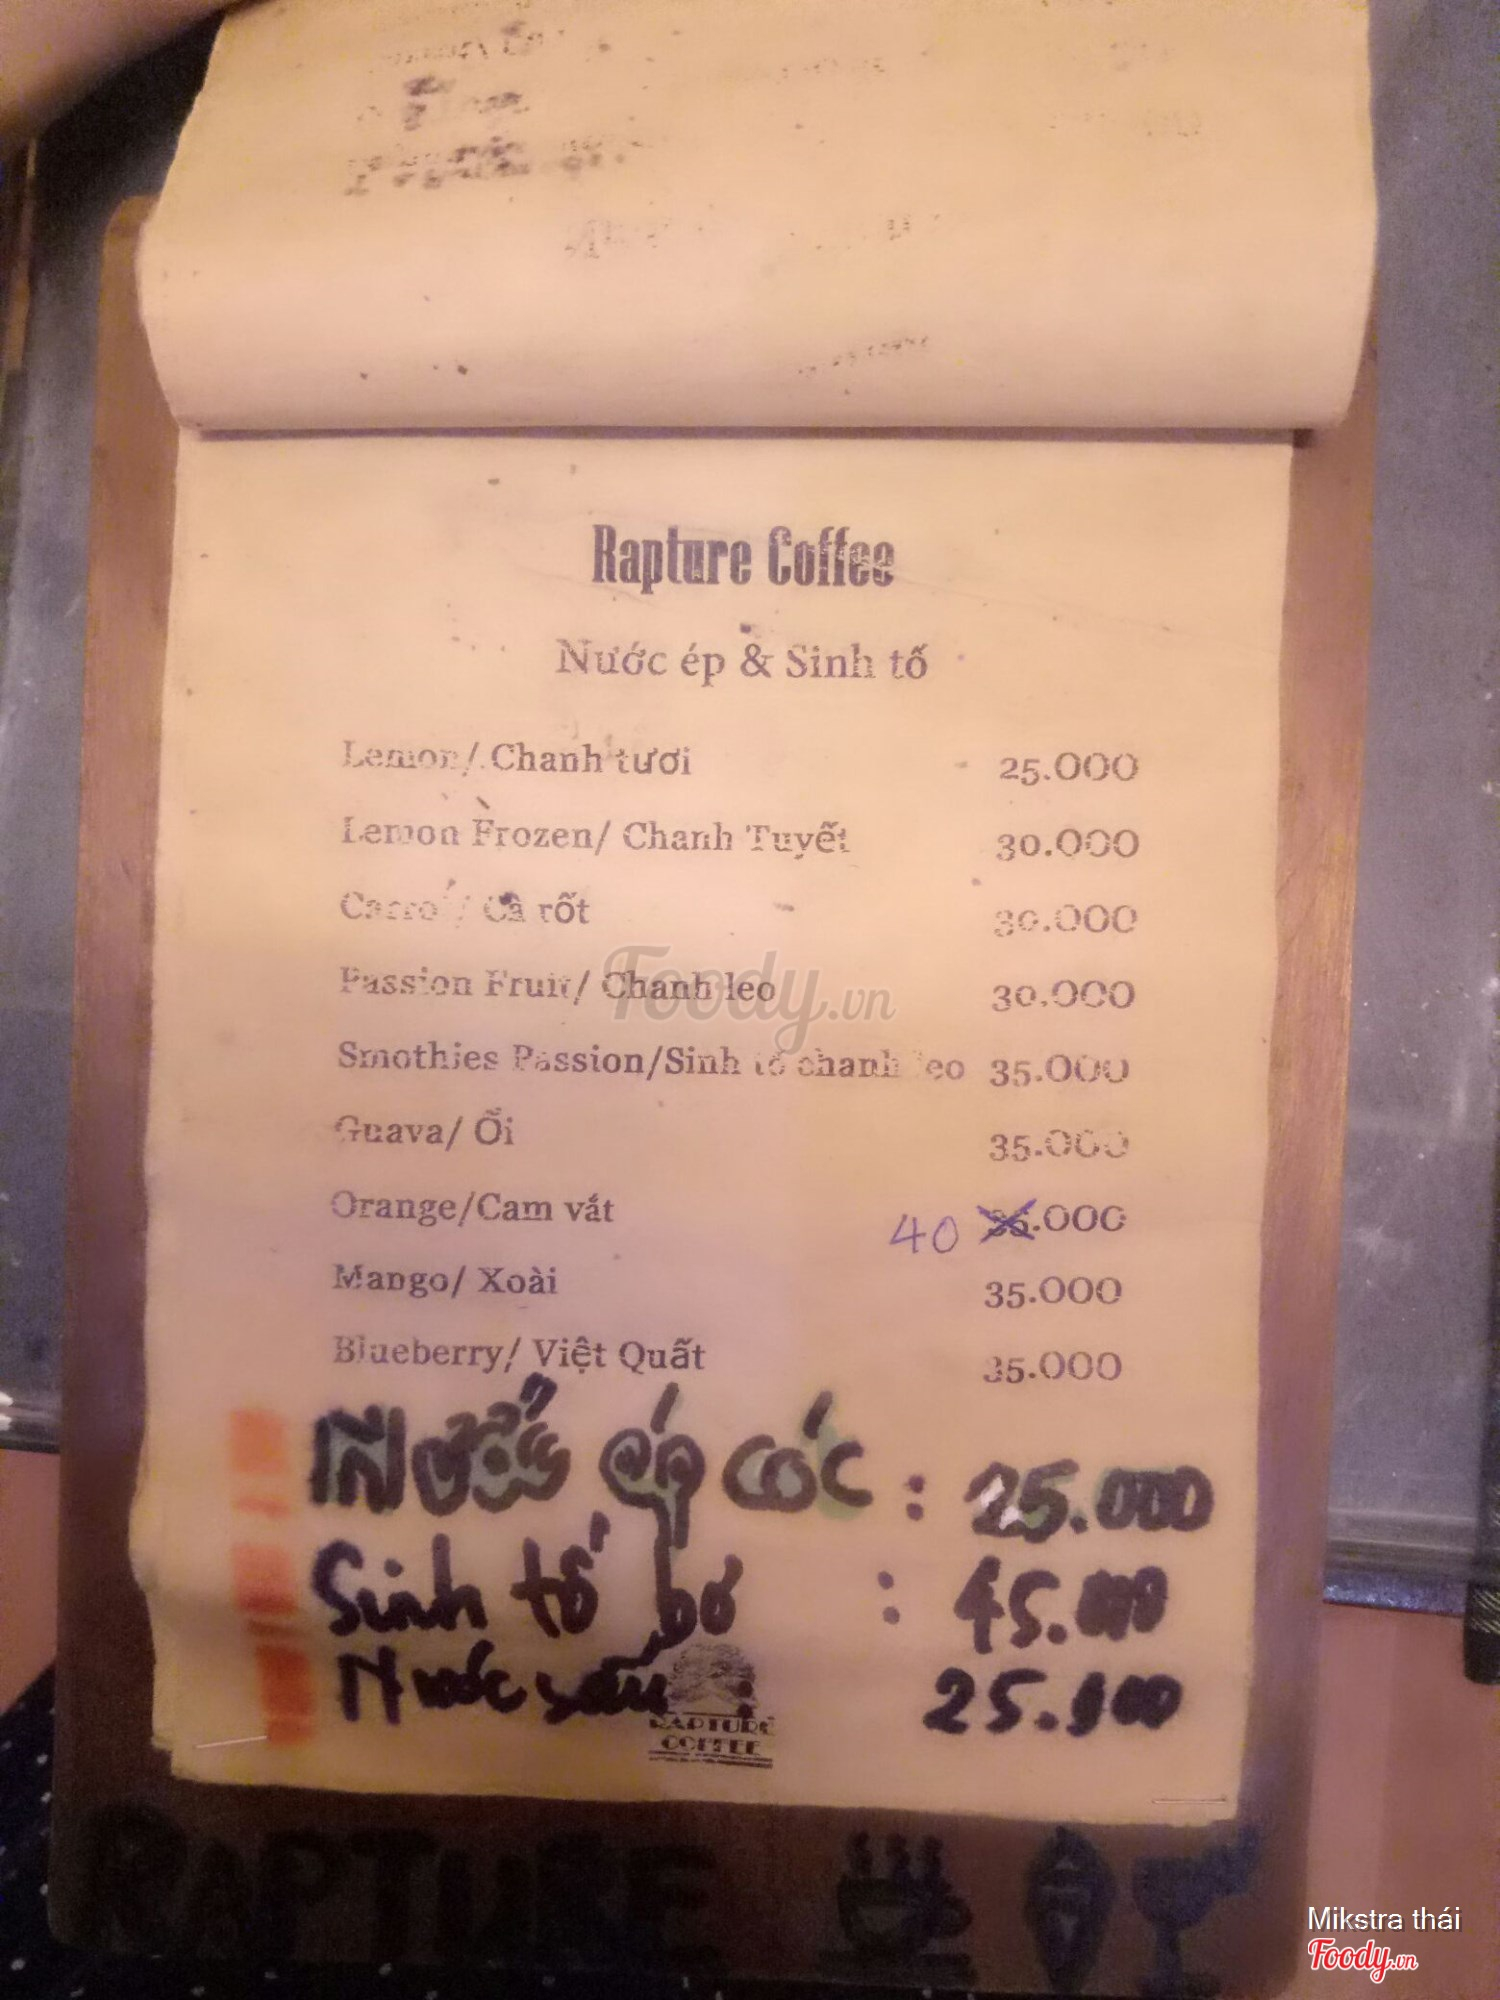 Rapture Coffee
Nước ép & Sinh tố
Lemon/ Chanh tươi 25.000
Lemon Frozen/ Chanh Tuyết 30.000
Carrot/ Cà rốt 30.000
Passion Fruit/ Chanh leo 30.000
Foody.vn
Smothies Passion/Sinh tố chanh leo 35.000
Guava/ Ổi 35.000
Orange/Cam vắt 40 35.000
Mango/ Xoài 35.000
Blueberry/ Việt Quất 35.000
Nước ép cóc : 25.000
Sinh tố bơ : 45.000
Nước sấu 25.000
RAPTURE
COFFEE
RAPTURE
Mikstra thái
Foody.vn